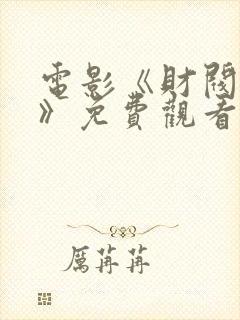 電影《財閥
》免費觀看
厲苒苒